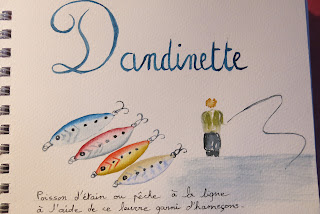 Dandinette
Poisson d'étain ou pêche à la ligne
à l'aide de ce leurre garni d'hameçons.